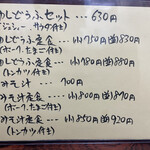 ゆしどうふセット … 630円
(ジューシー、サラダ付き)
ゆしどうふ定食 … (小)750円(中)830円
(ポーク、たまご付き)
ゆしどうふ定食 … (小)780円(中)880円
(トンカツ付き)
みそ汁 … 700円
みそ汁定食 … (小)800円(中)890円
(ポーク付き)
みそ汁定食 … (小)850円(中)920円
(トンカツ付き)